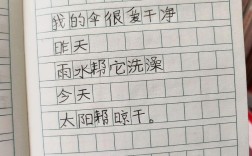 我的伞很爱干净
昨天
雨水帮它洗澡
今天
太阳帮晾干。